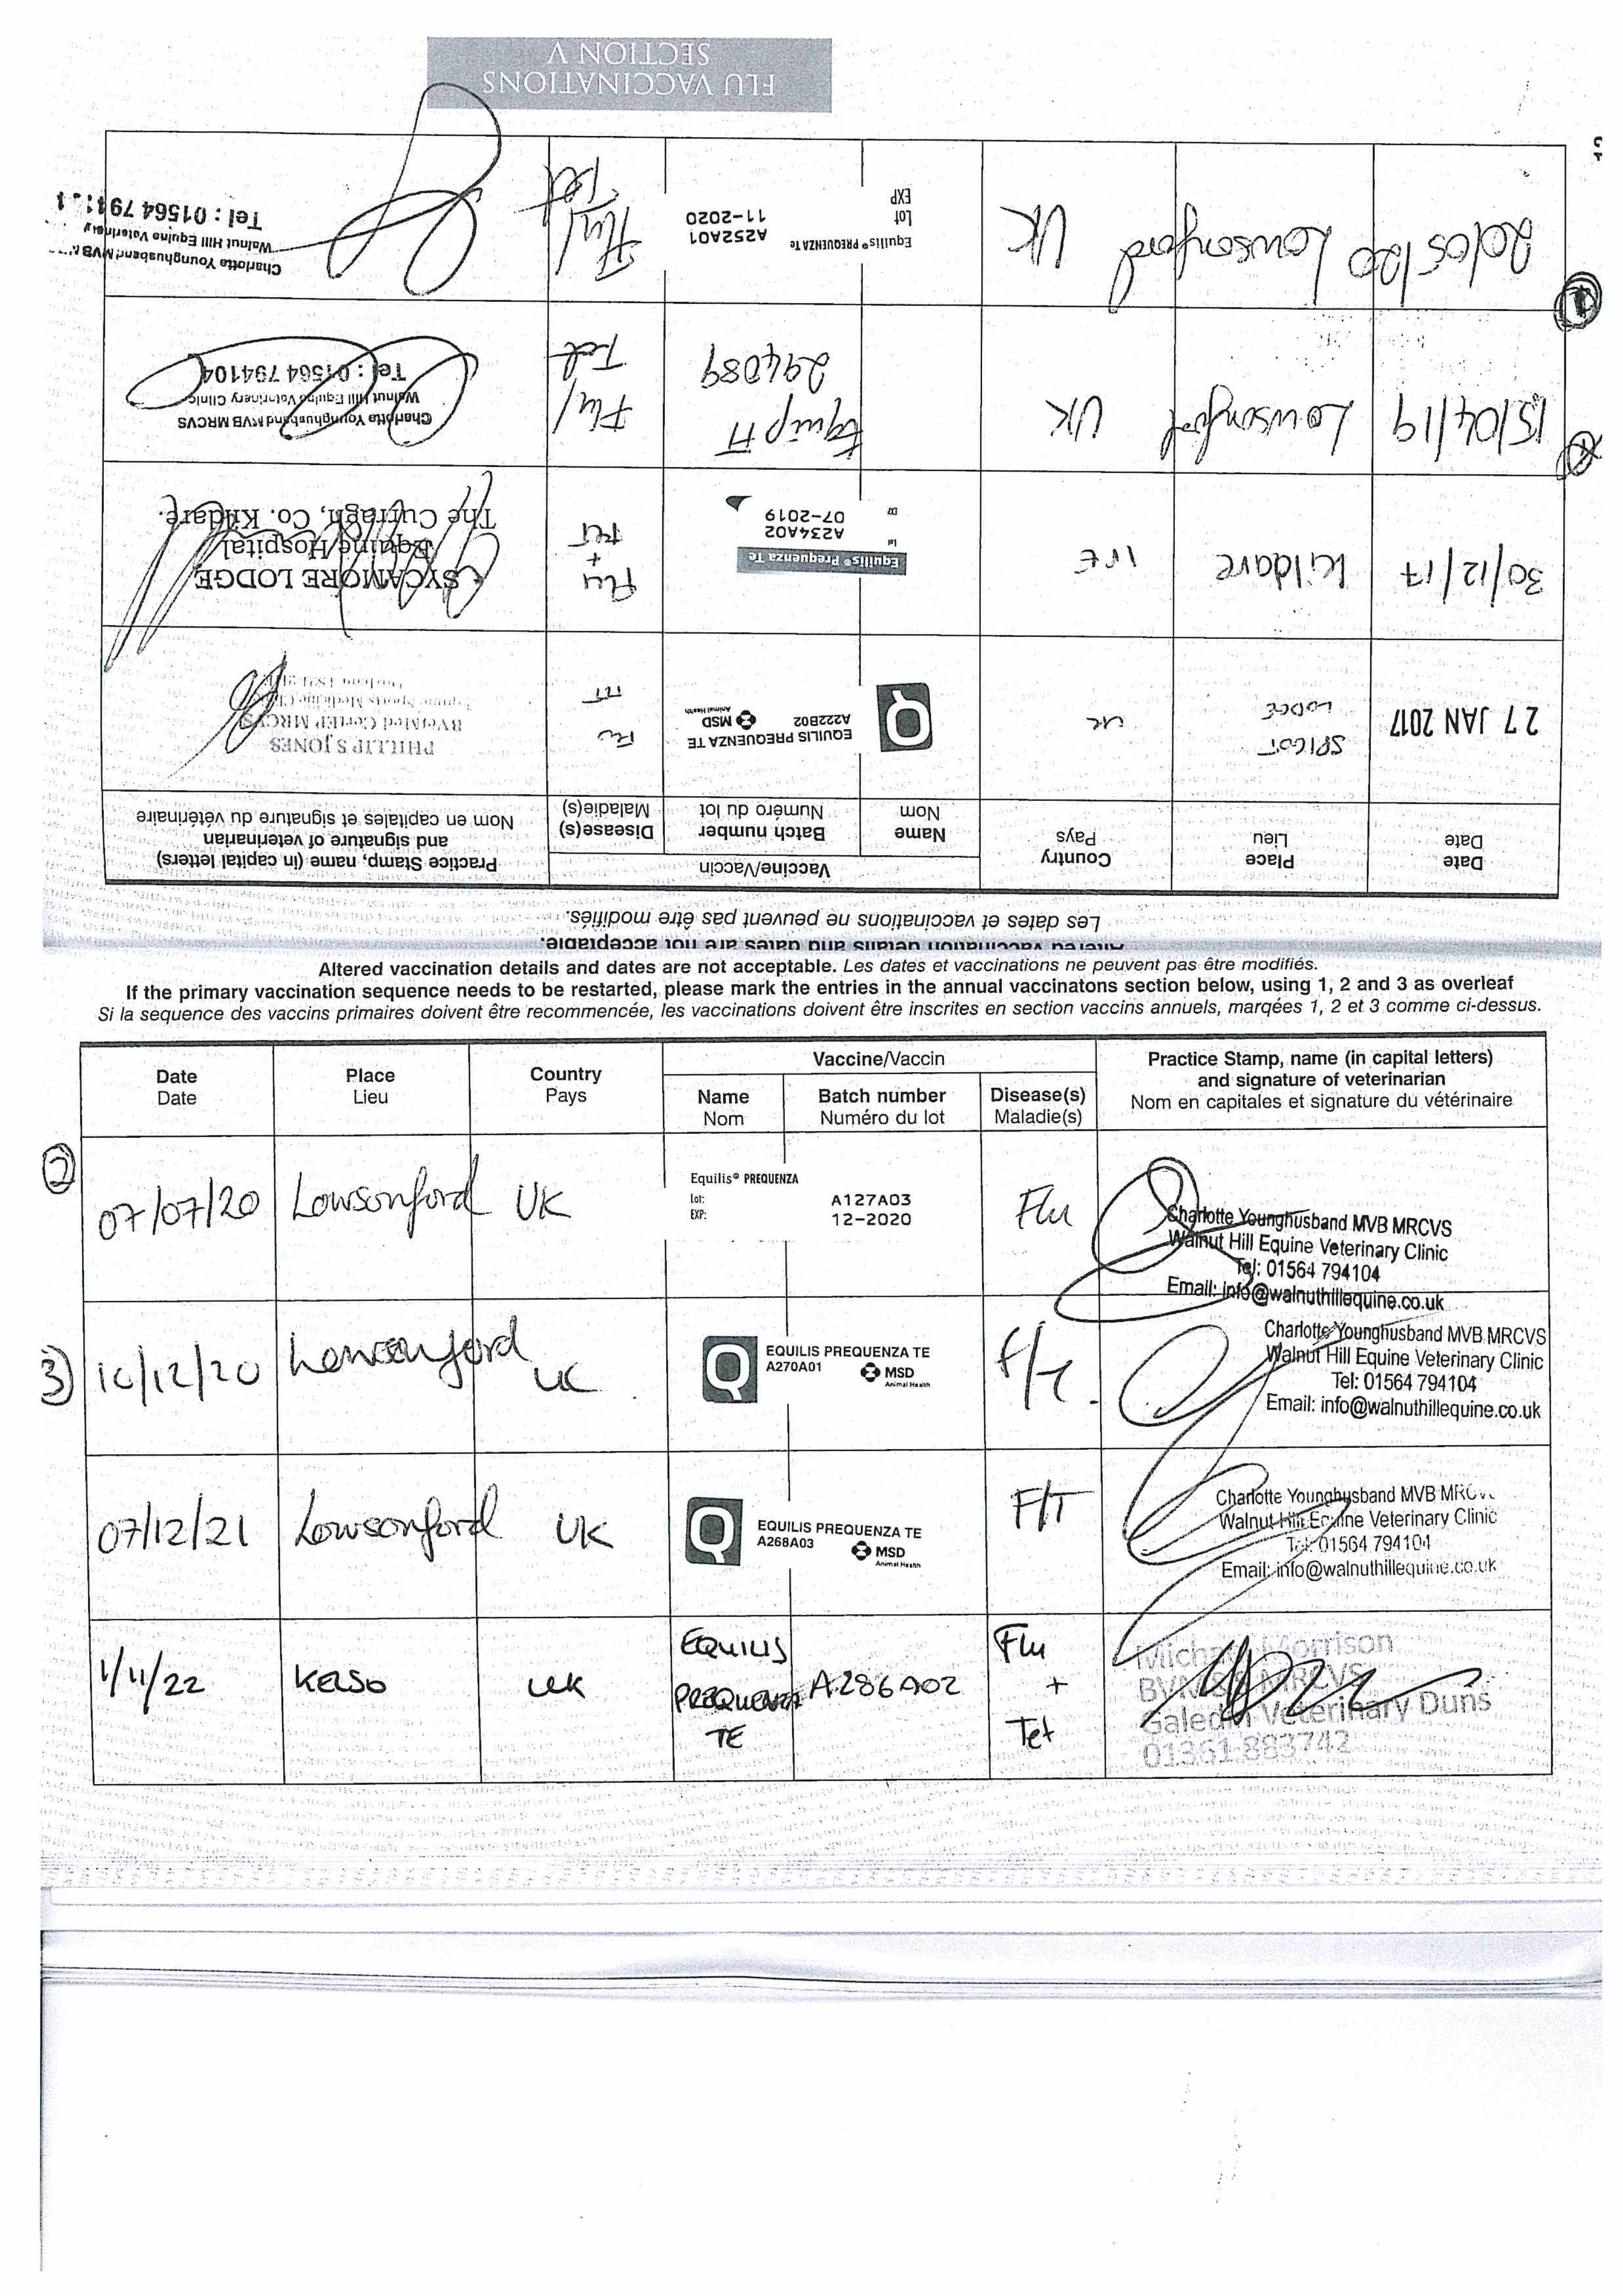 FLU VACCINATIONS
SECTION V
Altered vaccination details and dates are not acceptable.
Les dates et vaccinations ne peuvent pas être modifiés.
Date
Date
Place
Lieu
Country
Pays
Vaccine/Vaccin
Name
Nom
Batch number
Numéro du lot
Disease(s)
Maladie(s)
Practice Stamp, name (in capital letters)
and signature of veterinarian
Nom en capitales et signature du vétérinaire
27 JAN 2017
SPIGOT
LODGE
UK
EQUILIS PREQUENZA TE
A222B02
MSD
Animal Health
FLU
TET
PHILLIP S JONES
BVetMed CertEP MRCVS
30/12/17
Kildare
IRE
Equilis® Prequenza Te
Lot
A234A02
07-2019
Flu
+
Tet
SYCAMORE LODGE
Equine Hospital
The Curragh, Co. Kildare.
15/04/19
Lowsonford
UK
Equip FT
294089
Flu/
Tet
Charlotte Younghusband MVB MRCVS
Walnut Hill Equine Veterinary Clinic
Tel: 01564 794104
1
20/05/20
Lowsonford
UK
Equilis® PREQUENZA Te
Lot
A252A01
EXP
11-2020
Flu/
Tet
Charlotte Younghusband MVB
Walnut Hill Equine Veterinary
Tel: 01564 794
Altered vaccination details and dates are not acceptable. Les dates et vaccinations ne peuvent pas être modifiés.
If the primary vaccination sequence needs to be restarted, please mark the entries in the annual vaccinatons section below, using 1, 2 and 3 as overleaf
Si la sequence des vaccins primaires doivent être recommencée, les vaccinations doivent être inscrites en section vaccins annuels, marqées 1, 2 et 3 comme ci-dessus.
Date
Date
Place
Lieu
Country
Pays
Vaccine/Vaccin
Name
Nom
Batch number
Numéro du lot
Disease(s)
Maladie(s)
Practice Stamp, name (in capital letters)
and signature of veterinarian
Nom en capitales et signature du vétérinaire
2
07/07/20
Lowsonford
UK
Equilis® PREQUENZA
Lot: A127A03
EXP: 12-2020
Flu
Charlotte Younghusband MVB MRCVS
Walnut Hill Equine Veterinary Clinic
Tel: 01564 794104
Email: info@walnuthillequine.co.uk
3
/12/20
Lowsonford
UK
Q
EQUILIS PREQUENZA TE
A270A01
MSD
Animal Health
F/T.
Charlotte Younghusband MVB MRCVS
Walnut Hill Equine Veterinary Clinic
Tel: 01564 794104
Email: info@walnuthillequine.co.uk
07/12/21
Lowsonford
UK
Q
EQUILIS PREQUENZA TE
A268A03
MSD
Animal Health
F/T
Charlotte Younghusband MVB MRCVS
Walnut Hill Equine Veterinary Clinic
Tel: 01564 794104
Email: info@walnuthillequine.co.uk
1/11/22
Kelso
UK
EQUILIS
PREQUENZA
TE
A286A02
Flu
+
Tet
Michael Morrison
MRCVS
Galedin Veterinary Duns
01361 883742